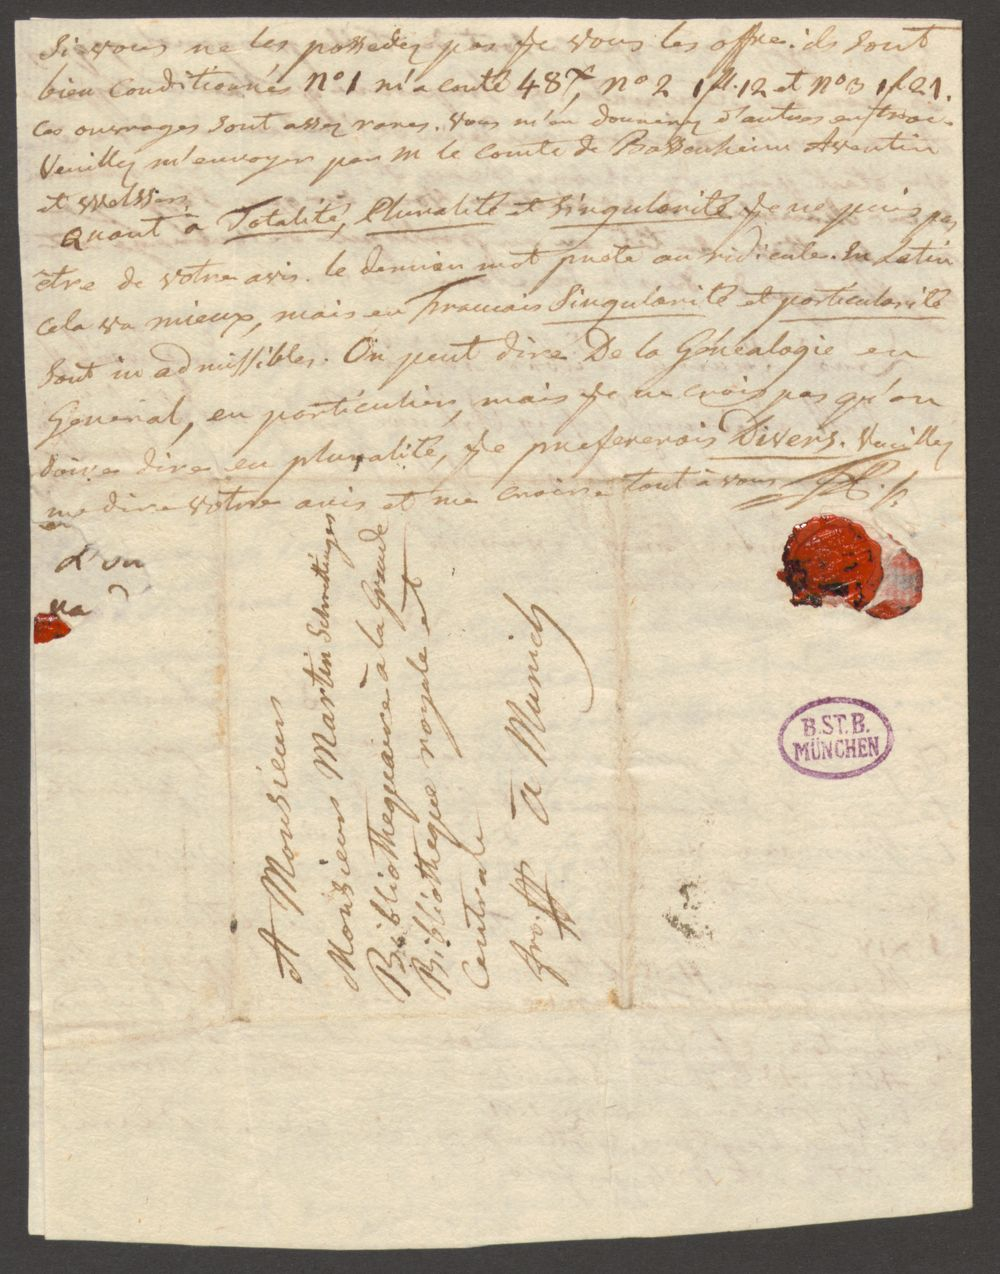 Si vous ne les possedez pas je vous les offre. ils sont
bien conditionnés n° 1 m'a couté 48x, n° 2 1 fl. 12 et n° 3 1 fl 21.
Ces ouvrages sont assez rares. Vous m'en donnerez d'autres en troc.
Veuillez m'envoyer par M le Comte de Bassenheim Aventin
et Welser.
Quant à Totalité, Pluralité et Singularité je ne puis pas
être de votre avis. le dernier mot prete au ridicule. En Latin
cela va mieux, mais en francais Singularité et particularité
sont inadmissibles. On peut dire De la Généalogie en
Général, en particulier, mais je ne crois pas qu'on
doive dire en pluralité, je prefererois Divers. Veuillez
me dire votre avis et me croire tout à vous
d'un
A Monsieur
Monsieur Martin Schrettinger
Bibliothequaire à la Grande
Bibliotheque royale et
Centrale
fro. à Munich
B. ST. B.
MÜNCHEN